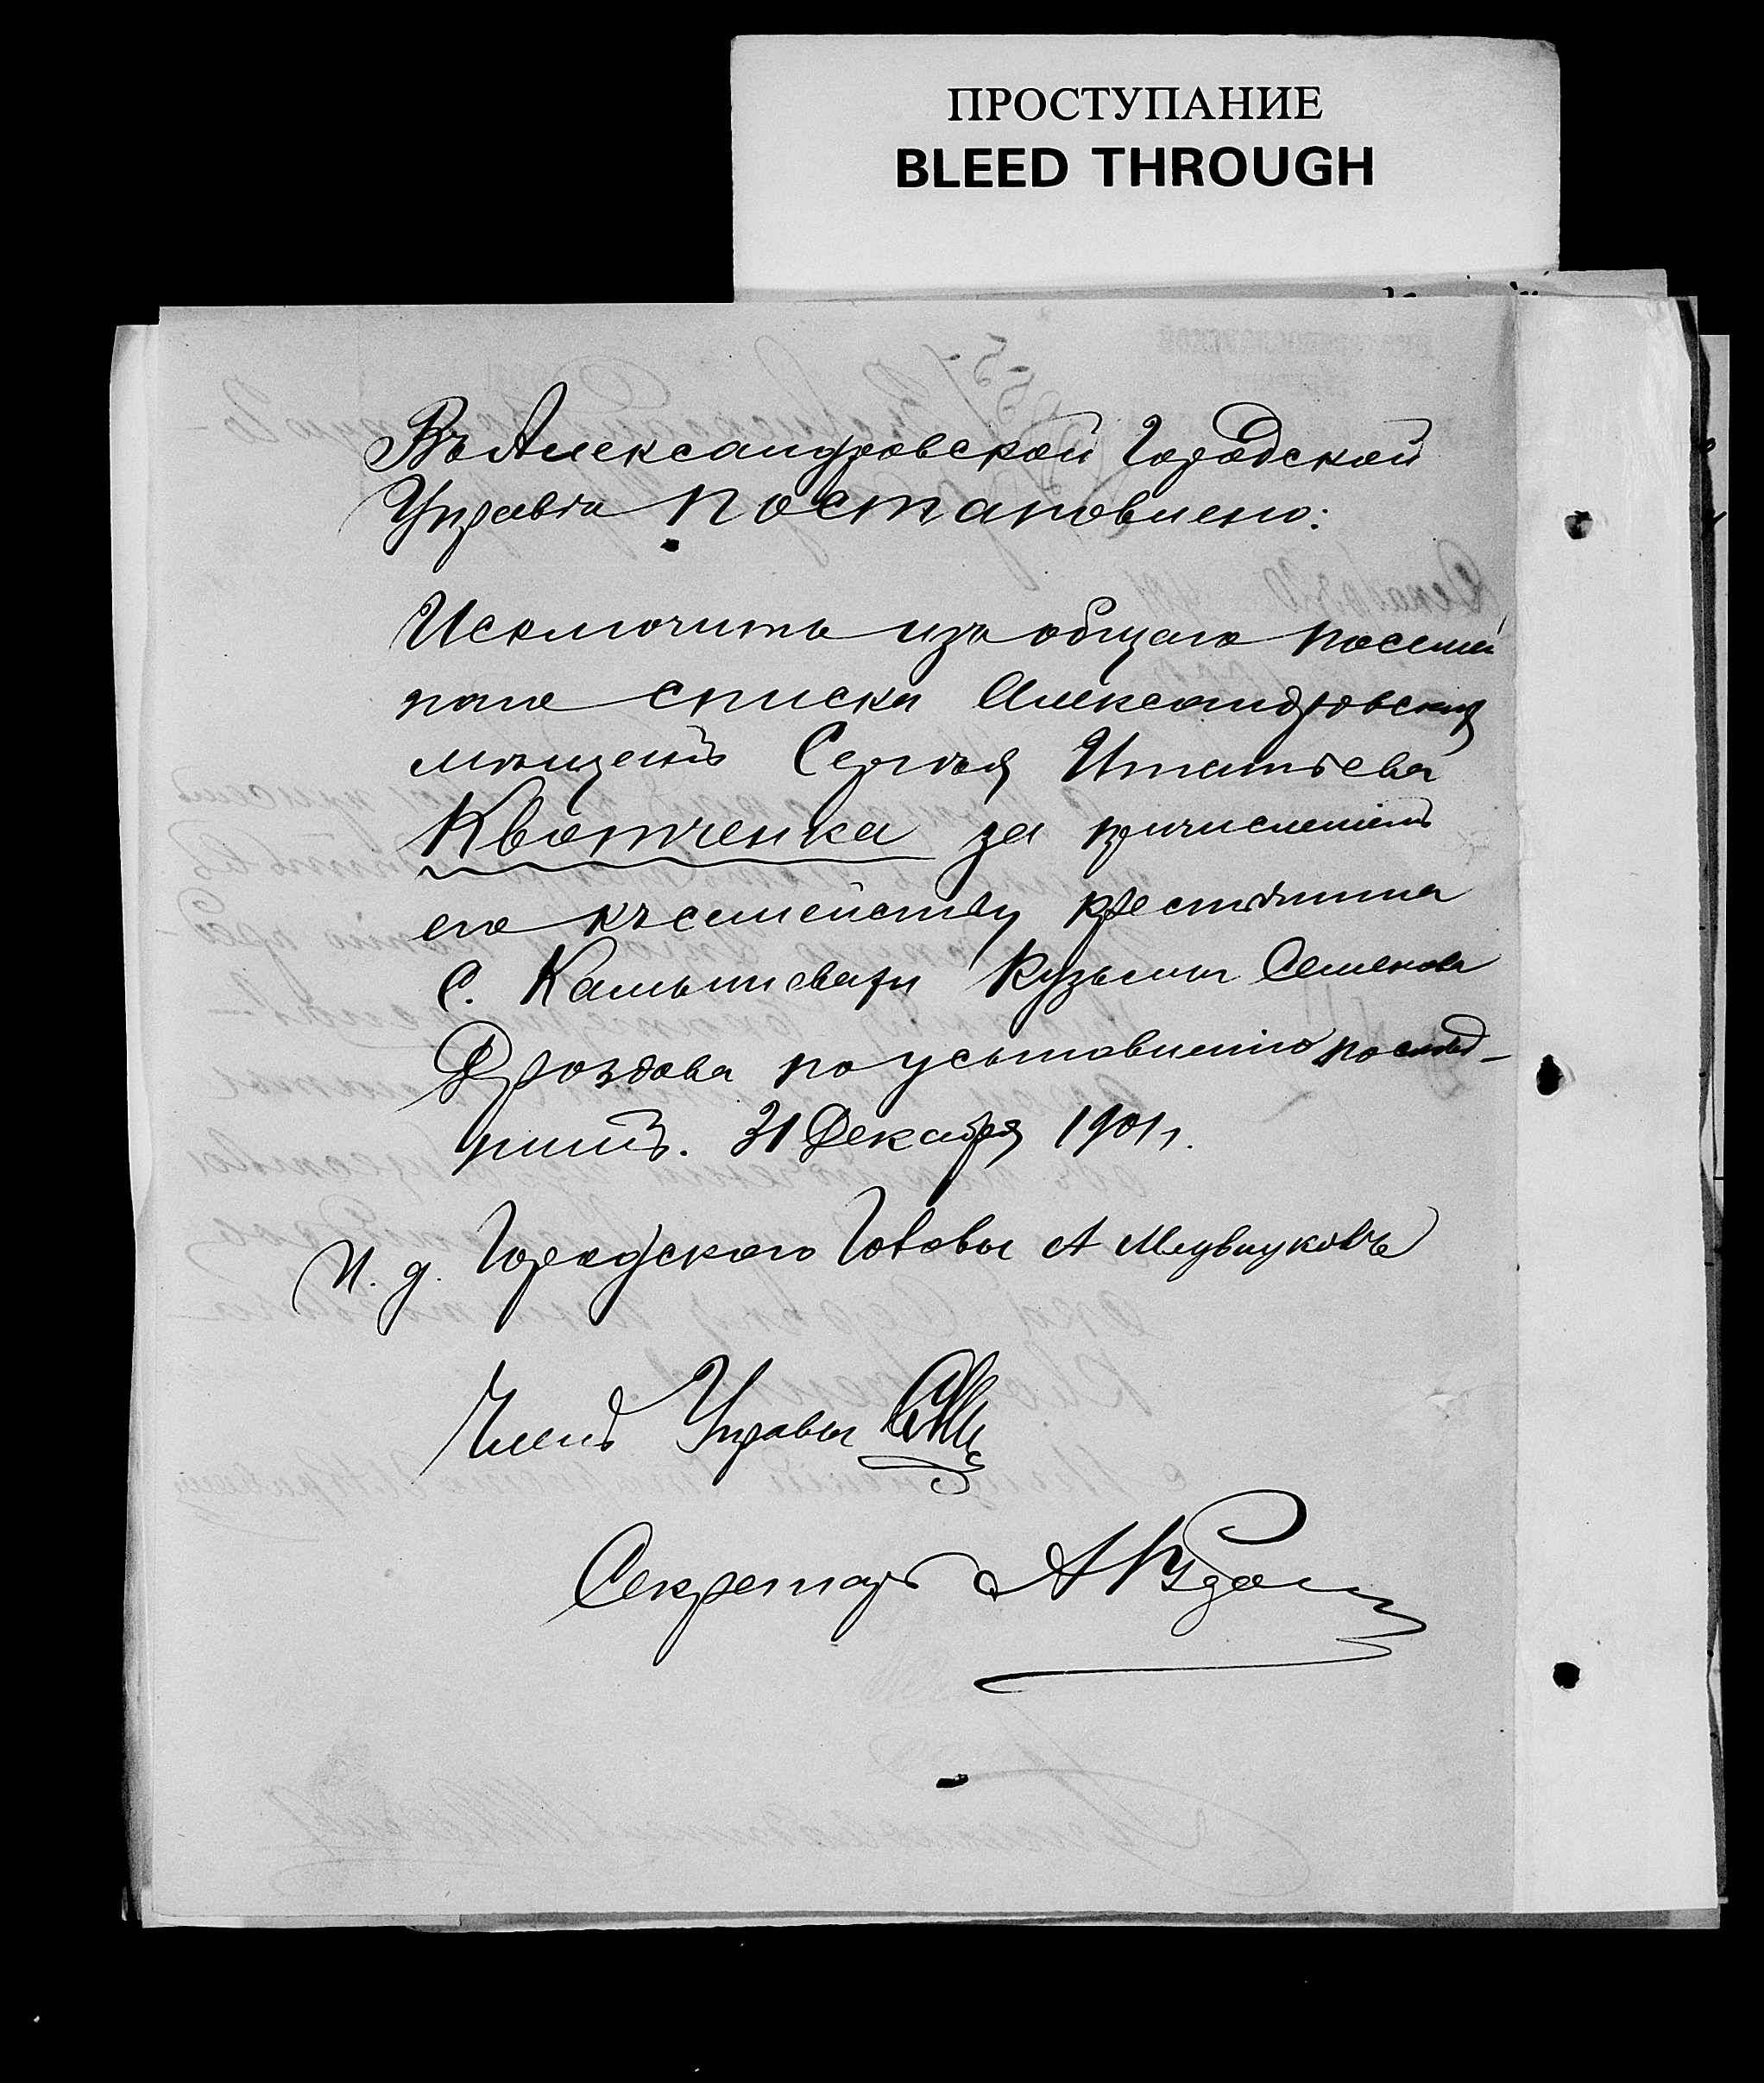 ПРОСТУПАНИЕ
BLEED THROUGH
Въ Александровской Городской
Управѣ Постановлено:
Исключить изъ общаго посемей
наго списка Александровских
мѣщанъ Сергѣя Игнатьева
Квотченка за причисленіемъ
его къ семейству крестьянина
с. Камышевахи Кузьмы Семенова
Дроздова по усыновленію послѣд-
нимъ. 31 Декабря 1901 г.
И. д. Городского Головы А
Членъ Управы
Секретарь А